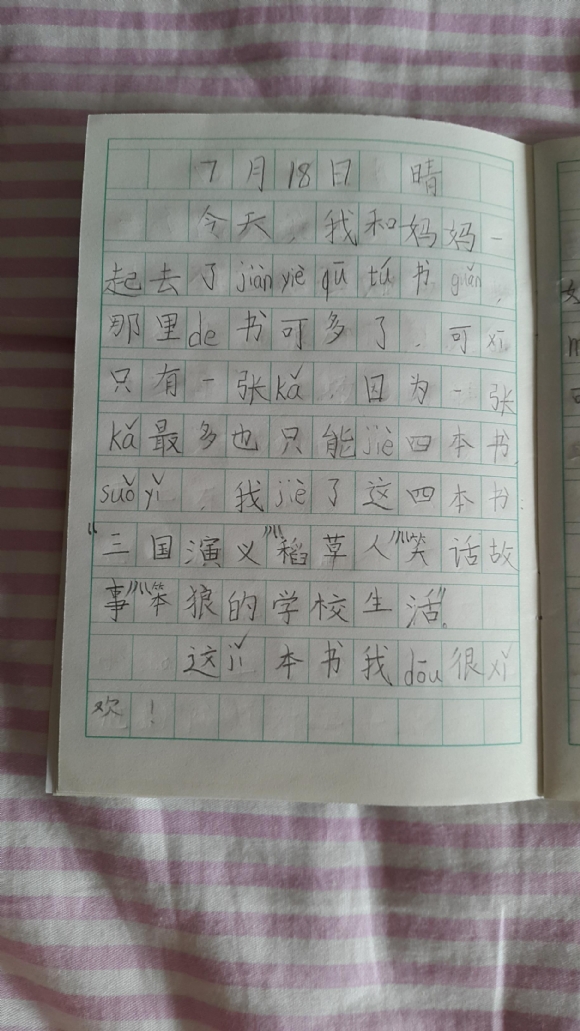 7月18日 晴
今天，我和妈妈一
起去了jiàn yiè qū tú书guǎn，
那里de书可多了，可xī
只有一张kǎ，因为一张
kǎ最多也只能jiè四本书
suǒ yǐ，我jiè了这四本书：
“三国演义”“稻草人”“笑话故
事”“笨狼的学校生活”。
这jǐ本书我dōu很xǐ
欢！